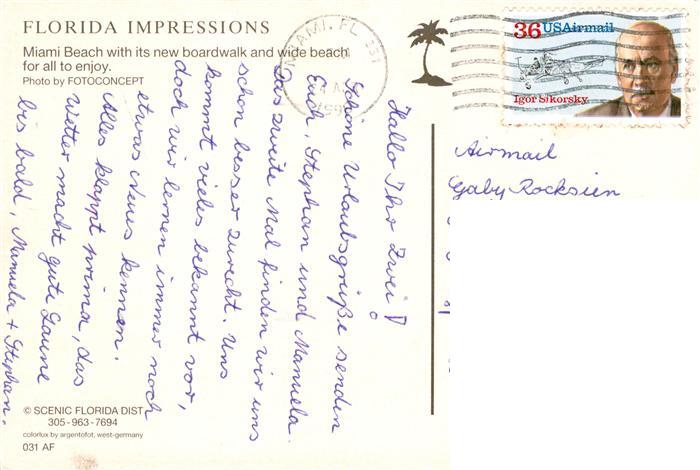 FLORIDA IMPRESSIONS
Miami Beach with its new boardwalk and wide beach
for all to enjoy.
Photo by FOTOCONCEPT
MIAMI, FL 331
36 USAirmail
Igor Sikorsky
Airmail
Gaby Rocksien
Hallo Ihr Zwei!
Schöne Urlaubsgrüße senden
Euch, Stephan und Manuela.
Das zweite Mal finden wir uns
schon besser zurecht. Uns
kommt vieles bekannt vor,
doch wir lernen immer noch
etwas Neues kennen.
Alles klappt prima, das
Wetter macht gute Laune
bis bald, Manuela + Stephan.
© SCENIC FLORIDA DIST
305-963-7694
colorlux by argentofot, west-germany
031 AF